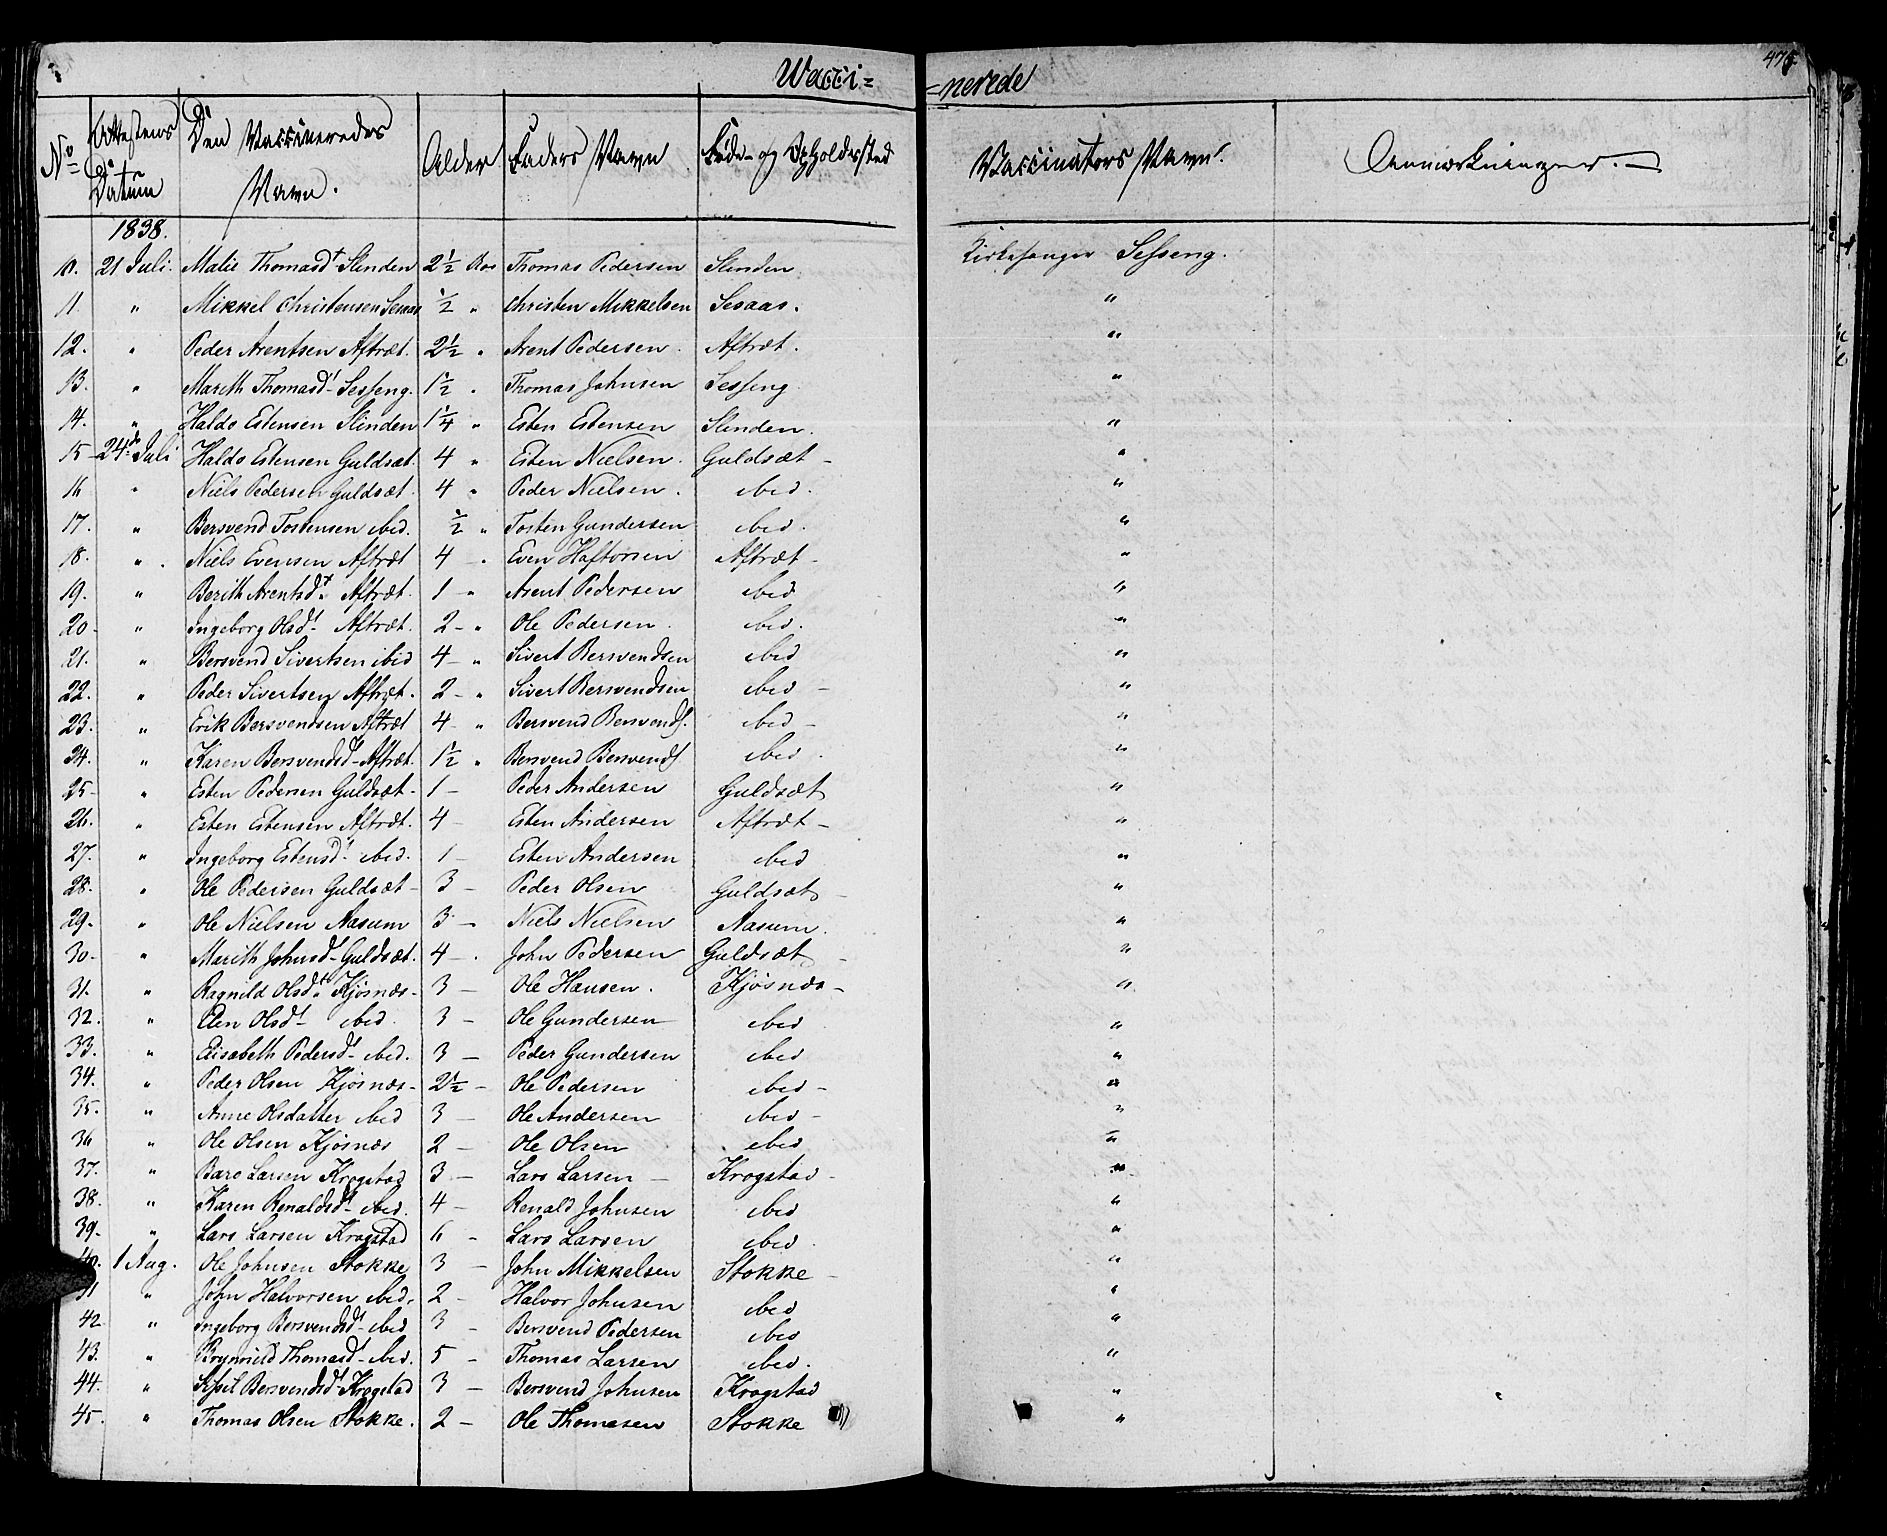 475
Wacci=
=nerede
No
Attestens Datum
Den Vaccineredes Navn.
Alder
Faders Navn
Føde- og Opholdssted
Vaccinators Navn.
Anmærkninger.
1838.
10. 21 Juli. Malie Thomasd Slinden 2½ Aar Thomas Pedersen Slinden Kirkesanger Sesseng.
11. " Mikkel Christensen Sesaas ½ " Christen Mikkelsen Sesaas. "
12. " Peder Arentsen Aftræt. 2½ " Arent Pedersen. Aftræt. "
13. " Marith Thomasd- Sesseng. 1½ " Thomas Johnsen Sesseng "
14. " Haldo Estensen Slinden 1¼ " Esten Estensen Slinden. "
15 24de Juli Haldo Estensen Guldsæt. 4 " Esten Nielsen. Guldsæt - "
16 " Niels Pedersen Guldsæt. 4 " Peder Nielsen. ibid. "
17. " Bersvend Tostensen ibid. ½ " Tosten Gundersen ibid. "
18. " Niels Evensen Aftræt 4 - Even Haftorsen Aftræt - "
19. " Berith Arentsd Aftræt. 1 " Arent Pedersen ibid "
20- " Ingeborg Olsd- Aftræt. 2- " Ole Pedersen. ibid. "
21. " Bersvend Sivertsen ibid 4- " Sivert Bersvendsen ibid "
22. " Peder Sivertsen Aftræt. 2- " Sivert Bersvendsen ibid - "
23. " Erik Bersvendsen Aftræt 4- " Bersvend Bersvends. ibid - "
24. " Karen Bersvendsd- Aftræt. 1½ " Bersvend Bersvends ibid. "
25- " Esten Pedersen Guldsæt- 1- Peder Andersen Guldsæt "
26. " Esten Estensen Aftræt. 4- Esten Andersen Aftræt - "
27. " Ingeborg Estensd- ibid. 1- Esten Andersen ibid "
28. " Ole Pedersen Guldsæt- 3- Peder Olsen Guldsæt - "
29. " Ole Nielsen Aasum 3- Niels Nielsen Aasum. "
30. " Marith Johnsd- Guldsæt. 4- John Pedersen Guldsæt - "
31. " Ragnild Olsd- Kjøsnæs- 3- Ole Hansen. Kjøsnæs - "
32. " Elen Olsd- ibid. 3- Ole Gundersen ibid "
33. " Elisabeth Pedersd- ibid. 3- Peder Gundersen ibid "
34. " Peder Olsen Kjøsnæs- 2½ - Ole Pedersen ibid - "
35. " Anne Olsdatter ibid 3- Ole Andersen ibid - "
36 " Ole Olsen Kjøsnæs 2- Ole Olsen ibid "
37. " Baro Larsen Krogstad 3- Lars Larsen - Krogstad - "
38. " Karen Renaldsd- ibid. 4- Renald Johnsen ibid "
39. " Lars Larsen Krogstad 6 - Lars Larsen ibid. "
40. 1 Aug. Ole Johnsen Stokke 3- John Mikkelsen Stokke - "
41 " John Halvorsen ibid. 2- Halvor Johnsen ibid "
42. " Ingeborg Bersvendsd- ibid 3- Bersvend Pedersen ibid "
43. " Brynnild Thomasd- ibid. 5- Thomas Larsen ibid. "
44. " Bersvendsd- Krogstad 3- Bersvend Johnsen Krogstad "
45. " Thomas Olsen Stokke. 2- Ole Thomesen Stokke "